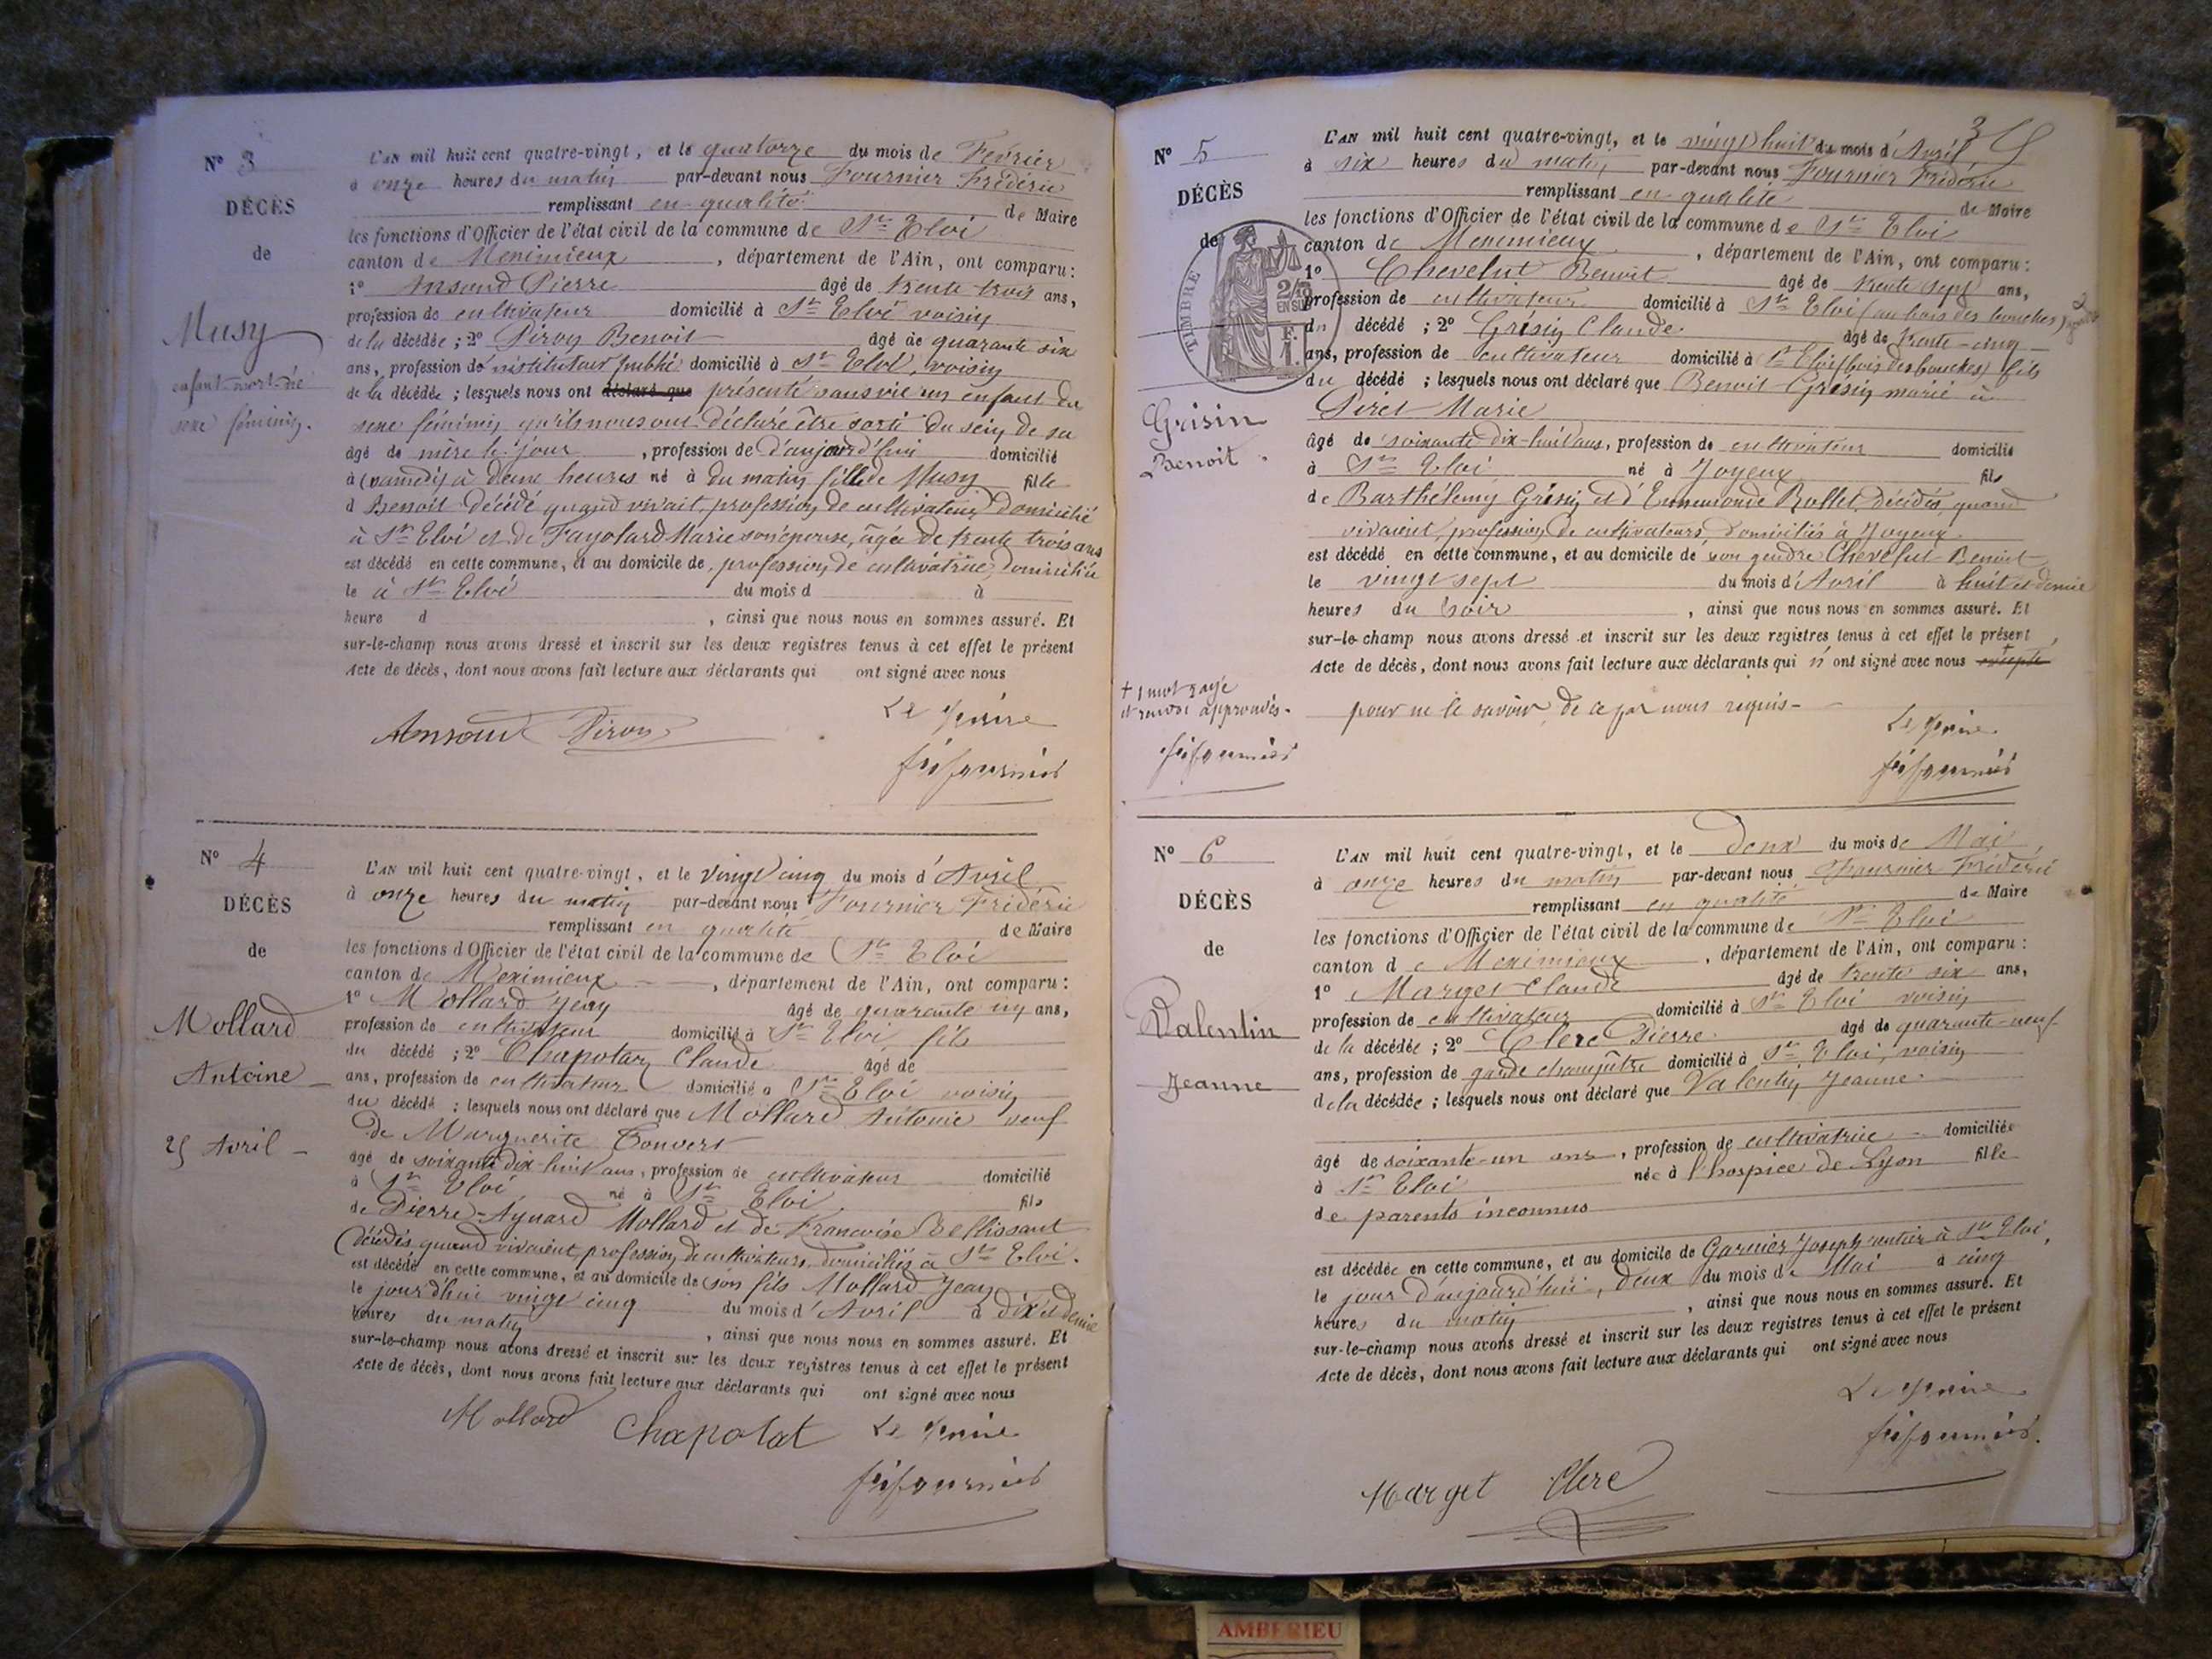 N° 3
DÉCÈS
de
Musy
enfant mort-né
sexe féminin.
L'AN mil huit cent quatre-vingt, et le quatorze du mois de Février
à onze heures du matin par-devant nous Fournier Frédéric
remplissant en qualité de Maire
les fonctions d'Officier de l'état civil de la commune de Ste Eloi
canton de Meximieux, département de l'Ain, ont comparu :
1° Ansoud Pierre âgé de trente trois ans,
profession de cultivateur domicilié à Ste Eloi voisin
de la décédée ; 2° Piron Benoit âgé de quarante six
ans, profession de instituteur public domicilié à Ste Eloi, voisin
de la décédée ; lesquels nous ont déclaré que présenté sans vie un enfant du
sexe féminin qu'ils nous ont déclaré être sorti du sein de sa
âgé de mère le jour, profession de d'aujourd'hui domicilié
à (samedi) à deux heures né à du matin fille de Musy fille
d Benoit décédé quand vivait, profession de cultivateur domicilié
à Ste Eloi et de Fayolard Marie son épouse, âgée de trente trois ans
est décédé en cette commune, et au domicile de, profession de cultivatrice, domiciliée
le à Ste Eloi du mois d à
heure d , ainsi que nous nous en sommes assuré. Et
sur-le-champ nous avons dressé et inscrit sur les deux registres tenus à cet effet le présent
Acte de décès, dont nous avons fait lecture aux déclarants qui ont signé avec nous
Ansoud Piron
Le Maire
Fournier
N° 4
DÉCÈS
de
Mollard
Antoine
25 Avril
L'AN mil huit cent quatre-vingt, et le vingt cinq du mois d'Avril
à onze heures du matin par-devant nous Fournier Frédéric
remplissant en qualité de Maire
les fonctions d'Officier de l'état civil de la commune de Ste Eloi
canton de Meximieux, département de l'Ain, ont comparu :
1° Mollard Jean âgé de quarante un ans,
profession de cultivateur domicilié à Ste Eloi fils
du décédé ; 2° Chapotaz Claude âgé de
ans, profession de cultivateur domicilié à Ste Eloi voisin
du décédé ; lesquels nous ont déclaré que Mollard Antoine veuf
de Marguerite Convert
âgé de soixante dix-huit ans, profession de cultivateur domicilié
à Ste Eloi né à Ste Eloi fils
de Pierre-Aynard Mollard et de Francoise Bellissant
décédés quand vivaient profession de cultivateurs, domiciliés à Ste Eloi.
est décédé en cette commune, et au domicile de son fils Mollard Jean
le jourd'hui vingt cinq du mois d'Avril à dix et demie
heures du matin, ainsi que nous nous en sommes assuré. Et
sur-le-champ nous avons dressé et inscrit sur les deux registres tenus à cet effet le présent
Acte de décès, dont nous avons fait lecture aux déclarants qui ont signé avec nous
Mollard Chapotat Le Maire
Fournier
3
N° 5
DÉCÈS
de
TIMBRE
2/10
EN SUS
F.
1.
Grisin
Benoit
L'AN mil huit cent quatre-vingt, et le vingt huit du mois d'Avril,
à six heures du matin, par-devant nous Fournier Frédéric
remplissant en qualité de Maire
les fonctions d'Officier de l'état civil de la commune de Ste Eloi
canton de Meximieux, département de l'Ain, ont comparu :
1° Chevelut Benoit âgé de trente sept ans,
profession de cultivateur domicilié à Ste Eloi (au bois des bouches)
du décédé ; 2° Grésin Claude âgé de trente-cinq
ans, profession de cultivateur domicilié à Ste Eloi (bois des bouches) fils
du décédé ; lesquels nous ont déclaré que Benoit Grésin marié à
Piret Marie
âgé de soixante dix-huit ans, profession de cultivateur domicilié
à Ste Eloi né à Joyeux fils
de Barthélemy Grésin et d'Ennemonde Rollet, décédés, quand
vivaient, profession de cultivateurs, domiciliés à Joyeux
est décédé en cette commune, et au domicile de son gendre Chevelut Benoit
le vingt sept du mois d'Avril à huit et demie
heures du soir, ainsi que nous nous en sommes assuré. Et
sur-le-champ nous avons dressé et inscrit sur les deux registres tenus à cet effet le présent
Acte de décès, dont nous avons fait lecture aux déclarants qui n'ont signé avec nous excepté
pour ne le savoir, de ce par nous requis
+ 1 mot rayé
et renvoi approuvés.
Fournier
Le Maire
Fournier
N° 6
DÉCÈS
de
Valentin
Jeanne
L'AN mil huit cent quatre-vingt, et le deux du mois de Mai
à onze heures du matin par-devant nous Fournier Frédéric
remplissant en qualité de Maire
les fonctions d'Officier de l'état civil de la commune de Ste Eloi
canton de Meximieux, département de l'Ain, ont comparu :
1° Marget Claude âgé de trente six ans,
profession de cultivateur domicilié à Ste Eloi voisin
de la décédée ; 2° Clerc Pierre âgé de quarante-neuf
ans, profession de garde champêtre domicilié à Ste Eloi, voisin
de la décédée ; lesquels nous ont déclaré que Valentin Jeanne
âgé de soixante-un ans, profession de cultivatrice domiciliée
à Ste Eloi née à l'hospice de Lyon fille
de parents inconnus
est décédée en cette commune, et au domicile de Garnier Joseph rentier à Ste Eloi,
le jour d'aujourd'hui, deux du mois de Mai à cinq
heures du matin, ainsi que nous nous en sommes assuré. Et
sur-le-champ nous avons dressé et inscrit sur les deux registres tenus à cet effet le présent
Acte de décès, dont nous avons fait lecture aux déclarants qui ont signé avec nous
Le Maire
Fournier
Marget Clerc
AMBERIEU